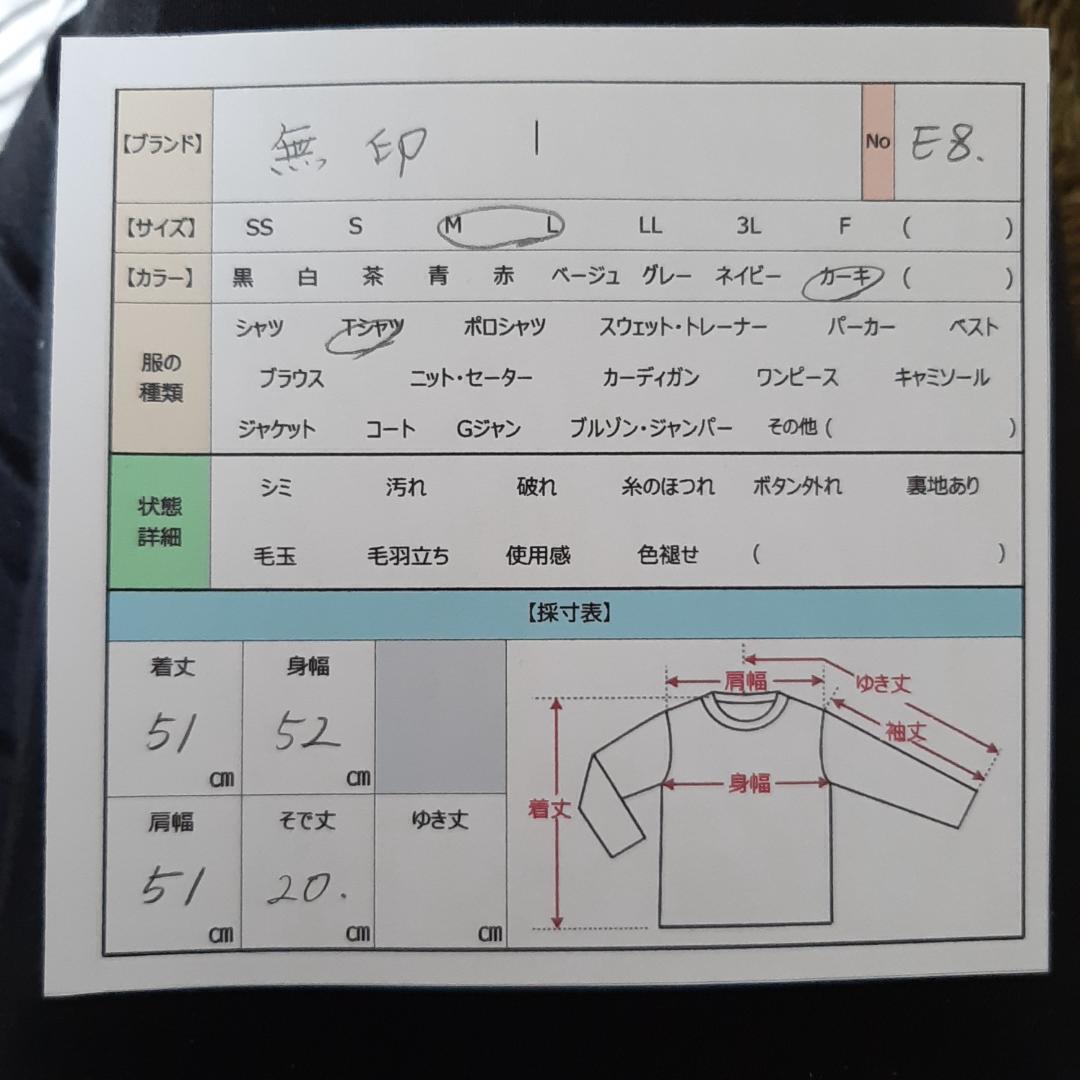 【ブランド】 無印 No E8.
【サイズ】 SS S M L LL 3L F ( )
【カラー】 黒 白 茶 青 赤 ベージュ グレー ネイビー カーキ ( )
服の種類
シャツ Tシャツ ポロシャツ スウェット・トレーナー パーカー ベスト
ブラウス ニット・セーター カーディガン ワンピース キャミソール
ジャケット コート Gジャン ブルゾン・ジャンパー その他 ( )
状態詳細
シミ 汚れ 破れ 糸のほつれ ボタン外れ 裏地あり
毛玉 毛羽立ち 使用感 色褪せ ( )
【採寸表】
着丈 身幅
51 cm 52 cm
肩幅 そで丈 ゆき丈
51 cm 20. cm cm
肩幅
ゆき丈
袖丈
身幅
着丈